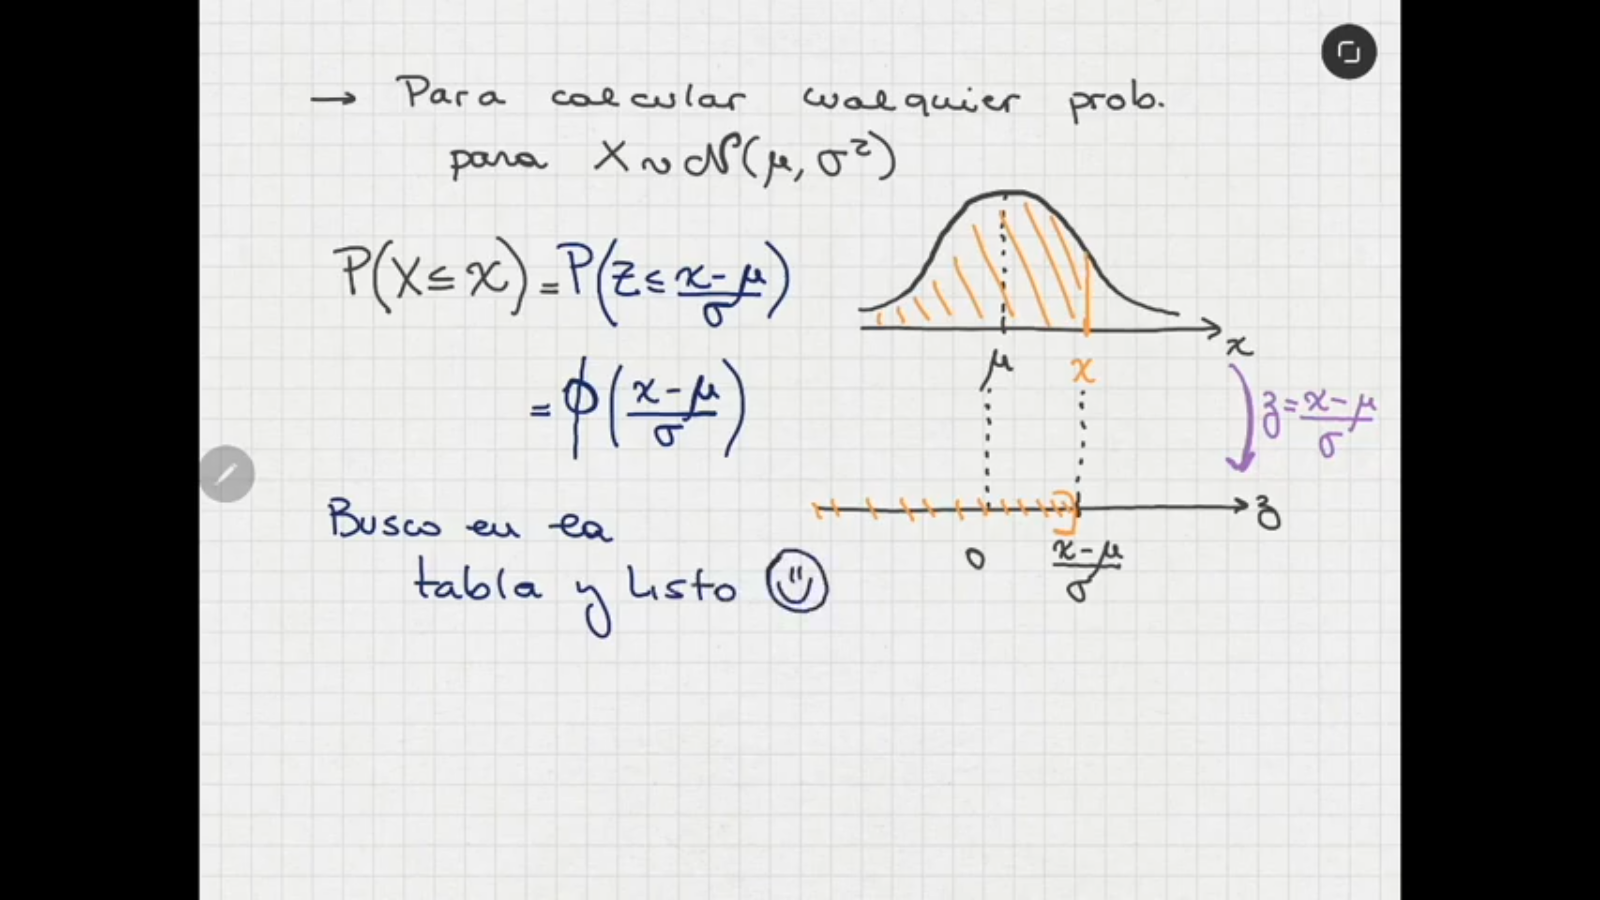 → Para calcular cualquier prob.
para X ~ N(μ, σ²)
P(X ≤ x) = P(Z ≤ (x - μ)/σ)
= ϕ((x - μ)/σ)
Busco en la
tabla y listo
x
μ x
z = (x - μ)/σ
z
0 (x - μ)/σ